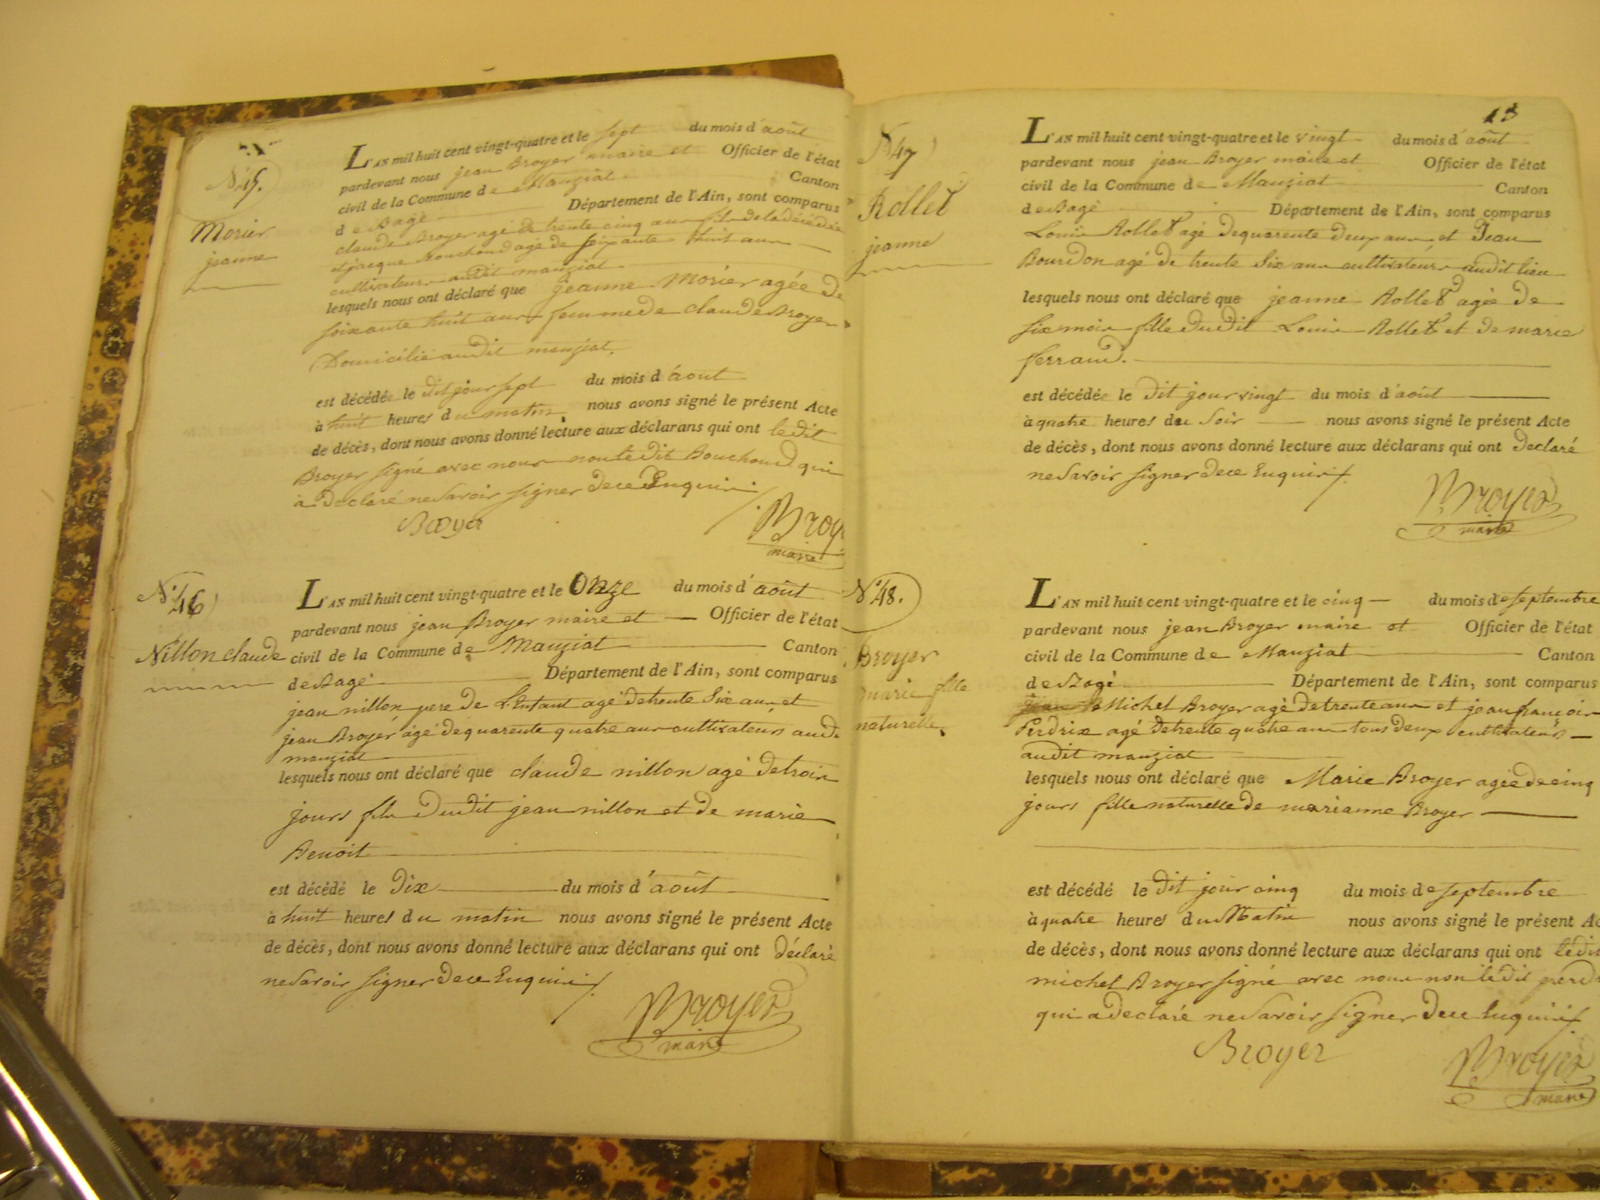 N.° 45.
Morier
jeanne
L'AN mil huit cent vingt-quatre et le sept du mois d'août
pardevant nous jean Broyer maire et Officier de l'état
civil de la Commune de Manziat Canton
de Bagé Département de l'Ain, sont comparus
claude Broyer agé de trente cinq ans fils de la décédée
et jacque Bouchoud agé de soixante huit ans
cultivateurs audit manziat
lesquels nous ont déclaré que jeanne Morier agée de
soixante huit ans femme de claude Broyer
Domicilié audit manziat.
est décédée le dit jour sept du mois d'août
à huit heures du matin, nous avons signé le présent Acte
de décès, dont nous avons donné lecture aux déclarans qui ont ledit
Broyer signé avec nous non ledit Bouchoud qui
à Déclaré ne Savoir signer de ce Enquis
Broyer
Broy
maire
N.° 46
Nillon claude
L'AN mil huit cent vingt-quatre et le Onze du mois d'août
pardevant nous jean Broyer maire et Officier de l'état
civil de la Commune de Manziat Canton
de Bagé Département de l'Ain, sont comparus
jean nillon pere de L'Enfant agé de trente Six ans, et
jean Broyer agé de quarente quatre ans cultivateurs aud.
manziat
lesquels nous ont déclaré que claude nillon agé de trois
jours fils Dudit jean nillon et de marie
Benoit
est décédé le Dix du mois d'août
à huit heures du matin nous avons signé le présent Acte
de décès, dont nous avons donné lecture aux déclarans qui ont déclaré
ne Savoir signer de ce Enquis
Broyer
maire
13
N 47
Rollet
jeanne
L'AN mil huit cent vingt-quatre et le vingt du mois d'août
pardevant nous jean Broyer maire et Officier de l'état
civil de la Commune de Manziat Canton
de Bagé Département de l'Ain, sont comparus
Louis Rollet agé de quarente Deux ans et Jean
Bourdon agé de trente Six ans cultivateurs audit lieu
lesquels nous ont déclaré que jeanne Rollet agée de
six mois fille dudit Louis Rollet et de marie
ferrand.
est décédée le dit jour vingt du mois d'août
à quatre heures du Soir nous avons signé le présent Acte
de décès, dont nous avons donné lecture aux déclarans qui ont declaré
ne Savoir signer de ce Enquis
Broyer
maire
N.° 48.
Broyer
marie fille
naturelle.
L'AN mil huit cent vingt-quatre et le cinq du mois de septembre
pardevant nous jean Broyer maire et Officier de l'état
civil de la Commune de Manziat Canton
de Bagé Département de l'Ain, sont comparus
Michel Broyer agé de trente ans et jean françois
Perdrix agé de trente quatre ans tous deux cultivateurs
audit manziat
lesquels nous ont déclaré que Marie Broyer agée de cinq
jours fille naturelle de marianne Broyer
est décédé le dit jour cinq du mois de septembre
à quatre heures du Matin nous avons signé le présent Ac
de décès, dont nous avons donné lecture aux déclarans qui ont ledit
michel Broyer signé avec nous non ledit perd
qui a declaré ne Savoir signer de ce Enquis
Broyer
Broyer
maire